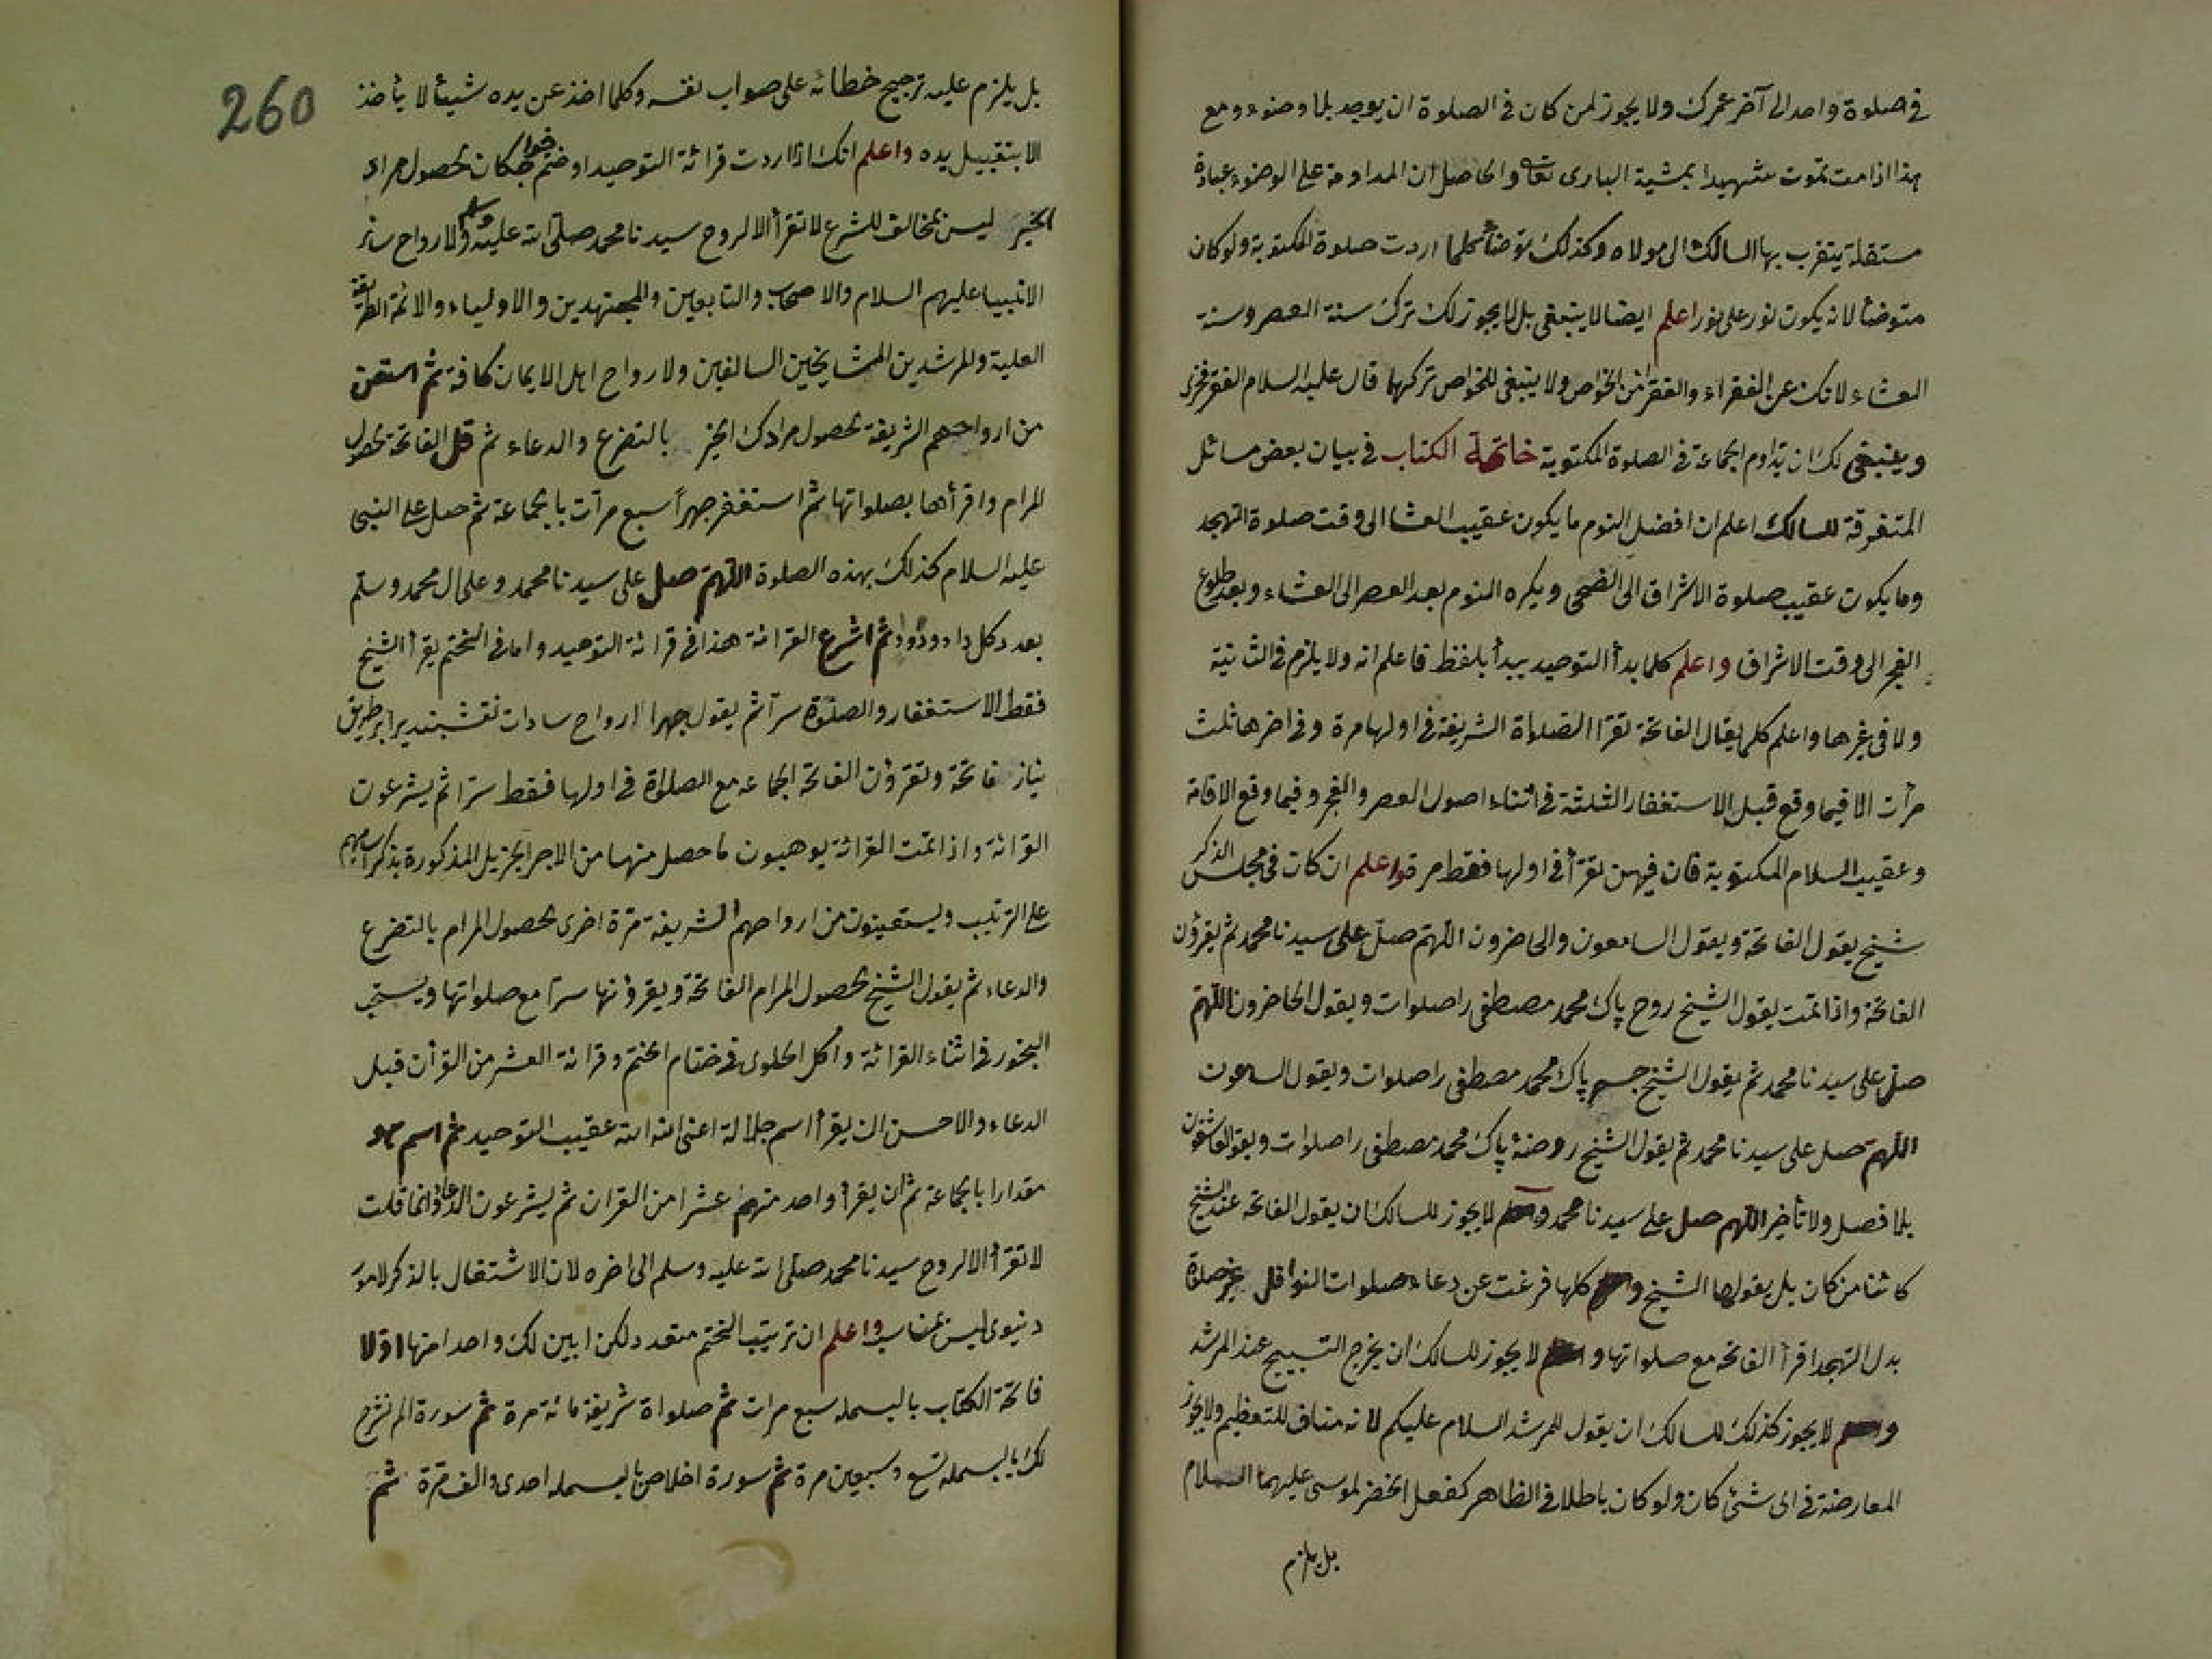 في صلوة واحد الى آخر عمرك ولا يجوز لمن كان في الصلوة ان يوجد بلا وضوء ومع
هذا اذا مت تموت شهيدا بمشية البارى تعا والحاصل ان المداومة على الوضوء عبادة
مستقلة يتقرب بها السالك الى مولاه وكذلك توضأ كلما اردت صلوة المكتوبة ولو كان
متوضأ لانه يكون نور على نور اعلم ايضا لا ينبغى بل لا يجوز لك ترك سنة العصر وسنة
العشاء لانك عن الفقراء والفقراء من الخواص ولا ينبغى للخواص تركها قال عليه السلام الفقر فخرى
وينبغى لك ان تداوم الجماعة في الصلوة المكتوبة خاتمة الكتاب في بيان بعض مسائل
المتفرقة للسالك اعلم ان افضل النوم ما يكون عقيب العشا الى وقت صلوة التهجد
وما يكون عقيب صلوة الاشراق الى الضحى ويكره النوم بعد العصر الى العشاء وبعد طلوع
الفجر الى وقت الاشراق واعلم كلما بدأ التوحيد يبدأ بلفظ فاعلم انه ولا يلزم في الثانية
ولا في غيرها واعلم كلما يقال الفاتحة تقرأ الصلاة الشريفة في اولها مرة وفي اخرها ثلث
مرأت الا فيما وقع قبل الاستغفار الثلثة في اثناء اصول العصر والفجر وفيما وقع الاقامة
وعقيب السلام المكتوبة فان فيهن تقرأ في اولها فقط مرة واعلم ان كان في مجلس الذكر
شيخ يقول الفاتحة ويقول السامعون والحاضرون اللهم صل على سيدنا محمد ثم يقرؤن
الفاتحة واذا تمت يقول الشيخ روح پاك محمد مصطفى را صلوات ويقول الحاضرون اللهم
صل على سيدنا محمد ثم يقول الشيخ جسم پاك محمد مصطفى را صلوات ويقول السامعون
اللهم صل على سيدنا محمد ثم يقول الشيخ روضۀ پاك محمد مصطفى را صلوات ويقول
بلا فصل ولا تأخير اللهم صل على سيدنا محمد واعلم لا يجوز للسالك ان يقول الفاتحة عند الشيخ
كائنا من كان بل يقولها الشيخ واعلم كلما فرغت عن دعاء صلوات النوافل غير صلاة
بدل التهجد اقرأ الفاتحة مع صلواتها واعلم لا يجوز للسالك ان يخرج التسبيح عند المرشد
واعلم لا يجوز كذلك للسالك ان يقول للمرشد السلام عليكم لانه مناف للتعظيم ولا يجوز
المعارضة في اى شئ كان ولو كان باطلا في الظاهر كفعل الخضر لموسى عليهما السلام
بل يلزم
260
بل يلزم عليه ترجيح خطائه على صواب نفسه وكلما اخذ عن يده شيئا لا يأخذ
الا بتقبيل يده واعلم انك اذا اردت قرائة التوحيد او ختم خواجكان لحصول مراد
الخير ليس بمخالف للشرع لا تقرأ الا لروح سيدنا محمد صلى الله عليه وسلم ولارواح سائر
الانبياء عليهم السلام والاصحاب والتابعين والمجتهدين والاولياء والائمة الطريقة
العلية والمرشدين المشايخين السالفين ولارواح اهل الايمان كافة ثم استعن
من ارواحهم الشريفة لحصول مرادك الخير بالتضرع والدعاء ثم قل الفاتحة لحصول
المرام واقرأها بصلواتها ثم استغفر جهراً سبع مرات بالجماعة ثم صل على النبى
عليه السلام كذلك بهذه الصلوة اللهم صل على سيدنا محمد وعلى ال محمد وسلم
بعدد كل داء ودواء ثم اشرع القرائة هذا في قرائة التوحيد واما في الختم يقرأ الشيخ
فقط الاستغفار والصلوة سرا ثم يقول جهرا ارواح سادات نقشبنديه را بر طريق
نياز فاتحة وتقرؤن الفاتحة الجماعه مع الصلوة في اولها فقط سرا ثم يشرعون
القرائة واذا تمت القرائة يوهبون ما حصل منها من الاجر الجزيل المذكورة بذكر اساميهم
على الترتيب ويستعينون من ارواحهم الشريفة مرة اخرى لحصول المرام بالتضرع
والدعاء ثم يقول الشيخ لحصول المرام الفاتحة ويقرؤنها سرا مع صلواتها ويستحب
البخور في اثناء القرائة واكل الحلوى في ختام الختم وقرائة العشر من القرأن قبل
الدعاء والاحسن ان يقرأ اسم جلالة اعنى الله الله عقيب التوحيد ثم اسم هو
مقدارا بالجماعة ثم ان يقرأ واحد منهم عشرا من القران ثم يشرعون الدعاء وانما قلت
لا تقرأ الا لروح سيدنا محمد صلى الله عليه وسلم الى اخره لان الاشتغال بالذكر لامور
دنيوى ليس بمناسب واعلم ان ترتيب الختم متعدد لكن ابين لك واحدا منها اولا
فاتحة الكتاب بالبسمله سبع مرات ثم صلواة شريفة مائة مرة ثم سورة الم نشرح
لك بالبسمله تسع وسبعين مرة ثم سورة اخلاص بالبسمله احدى والف مرة ثم